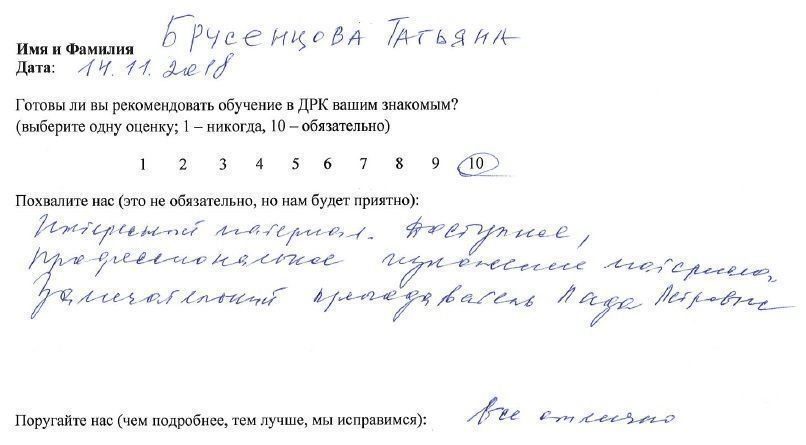 Имя и Фамилия Брусенцова Татьяна
Дата: 14.11.2018
Готовы ли вы рекомендовать обучение в ДРК вашим знакомым?
(выберите одну оценку; 1 – никогда, 10 – обязательно)
1 2 3 4 5 6 7 8 9 10
Похвалите нас (это не обязательно, но нам будет приятно):
Интересный материал. Доступное,
профессиональное изложение материала.
Замечательный преподаватель Лада Петровна
Поругайте нас (чем подробнее, тем лучше, мы исправимся): Все отлично